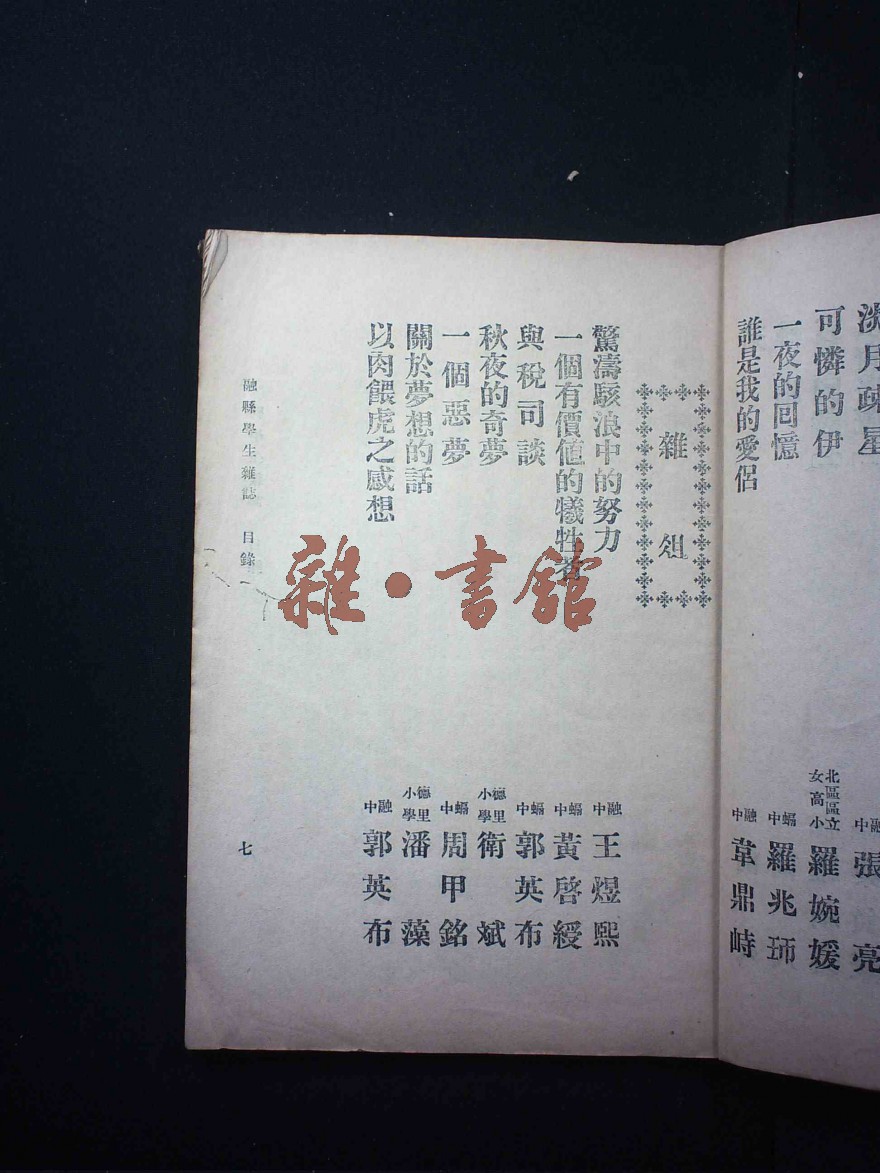 淡月疎星 融中 張亮
可憐的伊 北區區立女高小 羅婉媛
一夜的回憶 融中 羅兆
誰是我的愛侶 融中 韋鼎峙
雜俎
驚濤駭浪中的努力 融中 王煜熙
一個有價值的犧牲者 融中 黃啓綬
與稅司談 融中 郭英布
秋夜的奇夢 德里小學 衛斌
一個惡夢 融中 周甲銘
關於夢想的話 德里小學 潘藻
以肉餵虎之感想 融中 郭英布
融縣學生雜誌 目錄 七
雜·書館